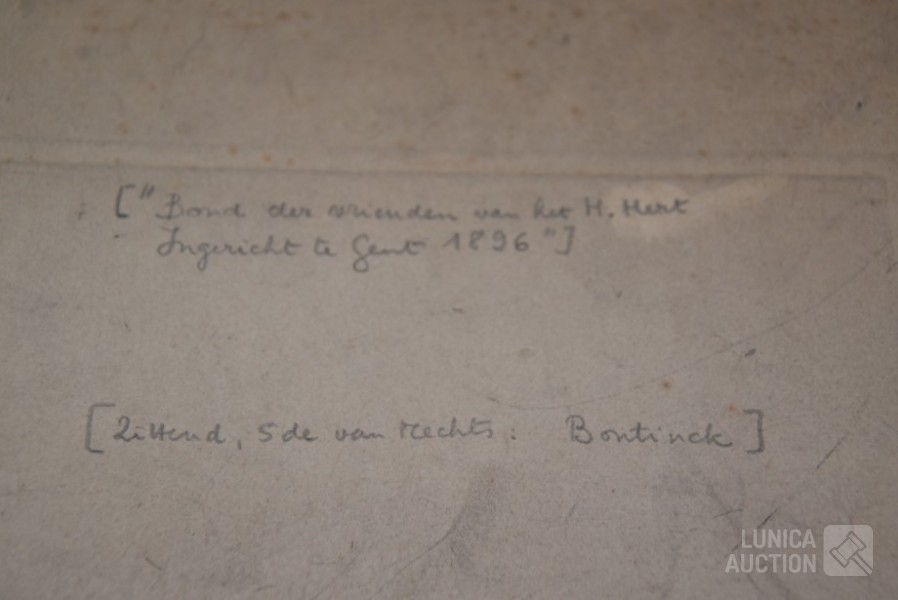 ["Bond der vrienden van het H. Hert
Ingericht te Gent 1896"]
[Zittend, 5de van rechts: Bontinck]
LUNICA
AUCTION